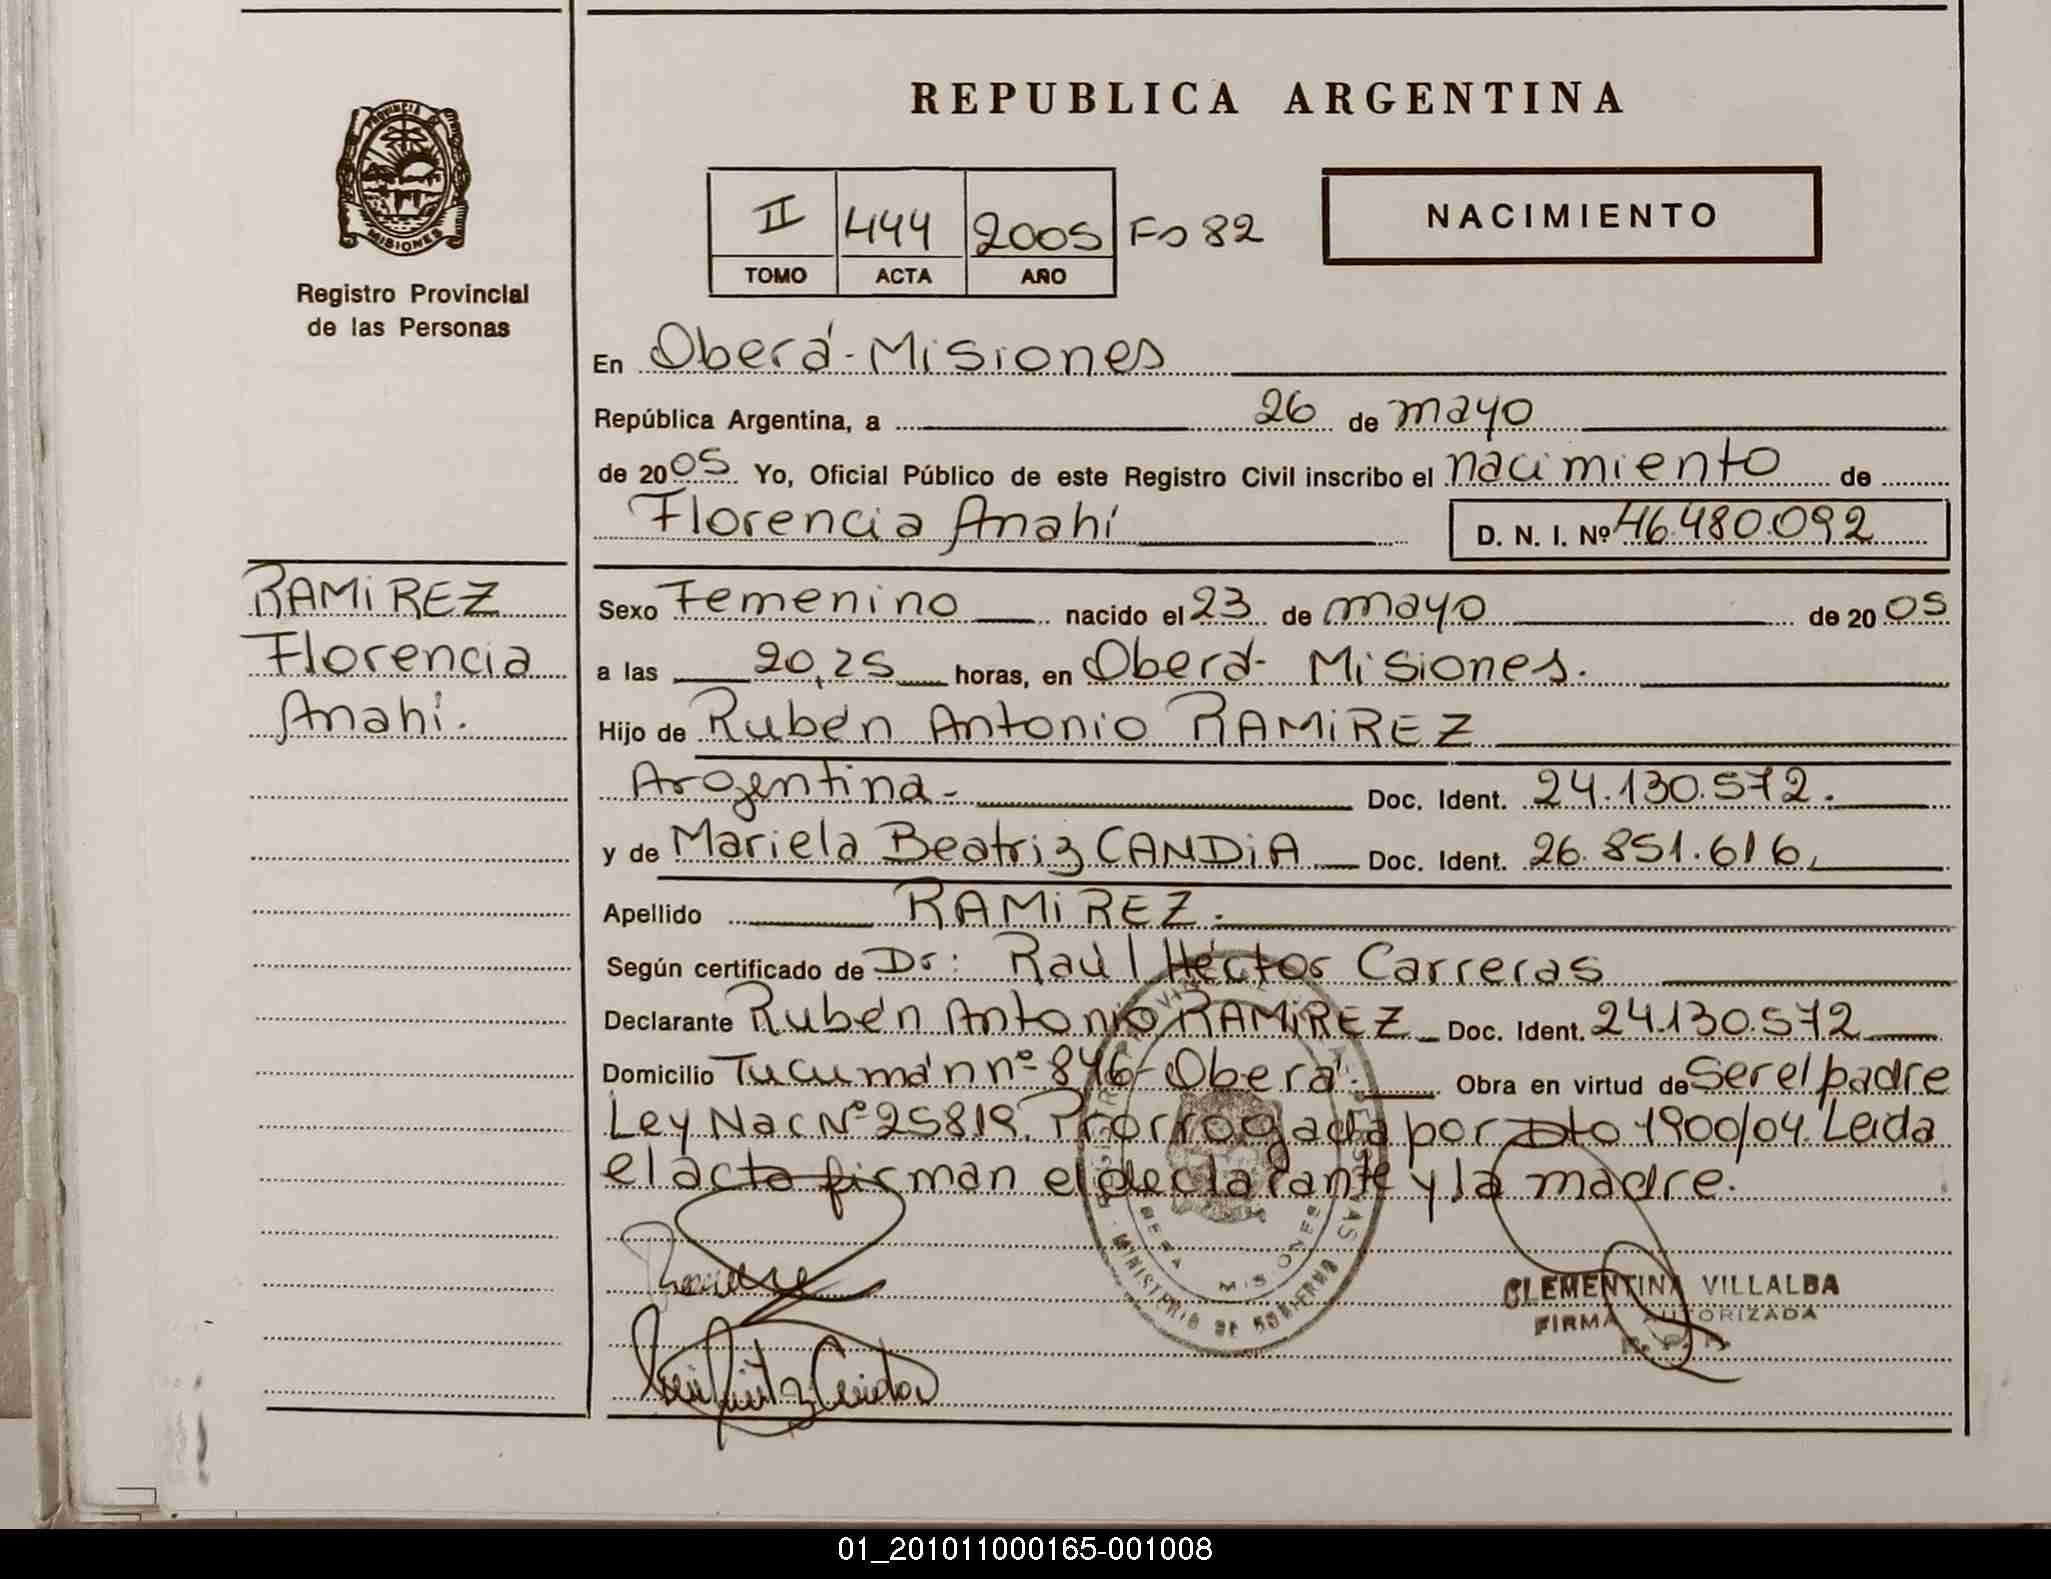 REPUBLICA ARGENTINA
PROVINCIA DE
MISIONES
Registro Provincial
de las Personas
II 444 2005 Fo 82
TOMO ACTA AÑO
NACIMIENTO
En Oberá - Misiones
República Argentina, a 26 de mayo
de 2005 Yo, Oficial Público de este Registro Civil inscribo el nacimiento de
Florencia Anahí D. N. I. Nº 46.480.092
RAMIREZ
Florencia
Anahí.
Sexo Femenino nacido el 23 de mayo de 2005
a las 20,25 horas, en Oberá - Misiones.
Hijo de Rubén Antonio RAMIREZ
Argentina - Doc. Ident. 24.130.572.
y de Mariela Beatriz CANDIA Doc. Ident. 26.851.616.
Apellido RAMIREZ.
Según certificado de Dr: Raúl Héctor Carreras
Declarante Rubén Antonio RAMIREZ Doc. Ident. 24.130.572
Domicilio Tucumán nº 846 - Oberá. Obra en virtud de Ser el padre
Ley Nac Nº 25819. Prorrogada por Dto 1900/04. Leida
el acta firman el declarante y la madre.
OBERA MISIONES
MINISTERIO DE GOBIERNO
CLEMENTINA VILLALBA
FIRMA AUTORIZADA
R. P. P.
01_201011000165-001008